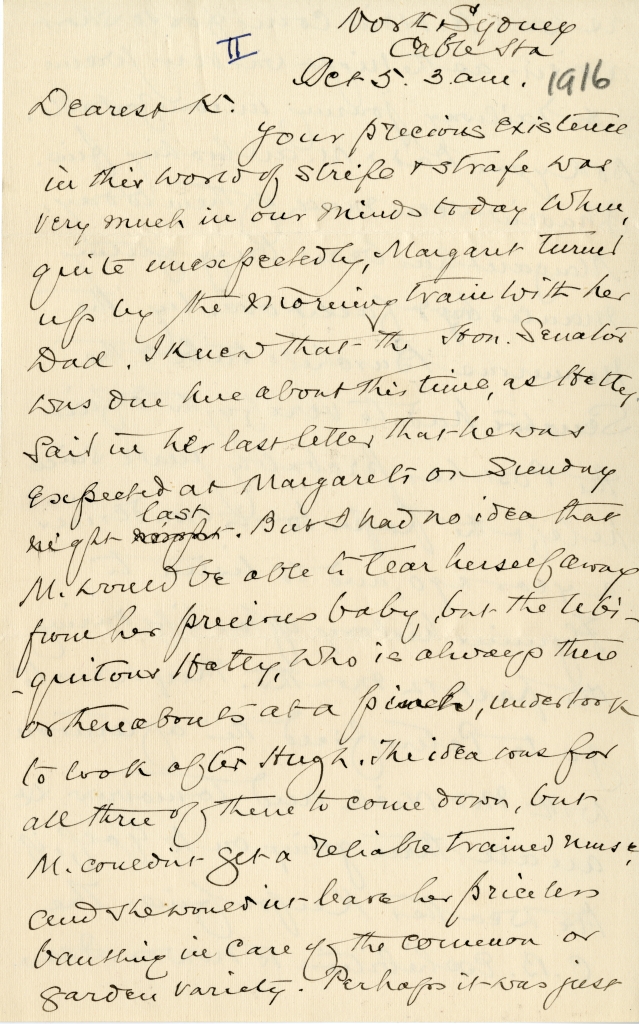 North Sydney
Cable Sta
II
Oct 5. 3 am. 1916
Dearest K.
Your precious existence
in this world of strife & strafe was
very much in our minds today when,
quite unexpectedly, Margaret turned
up by the morning train with her
Dad. I knew that the Hon. Senator
was due here about this time, as Hetty
said in her last letter that he was
expected at Margaret's on Sunday
night last. But I had no idea that
M. would be able to tear herself away
from her precious baby, but the ubi-
-quitous Hetty, who is always there
or thereabouts at a pinch, undertook
to look after Hugh. The idea was for
all three of them to come down, but
M. couldn't get a reliable trained nurse
and she wouldn't leave her priceless
bantling in care of the common or
garden variety. Perhaps it was just